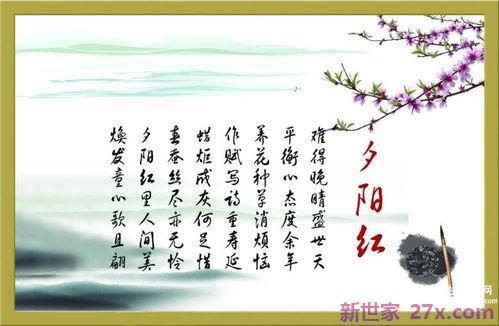 夕阳红
难得晚晴盛世天
平衡心态度余年
养花种草消烦恼
作赋写诗重寿延
蜡炬成灰何足惜
春蚕丝尽亦无怜
夕阳红里人间美
焕发童心歌且翩
网
新世家 27x.com